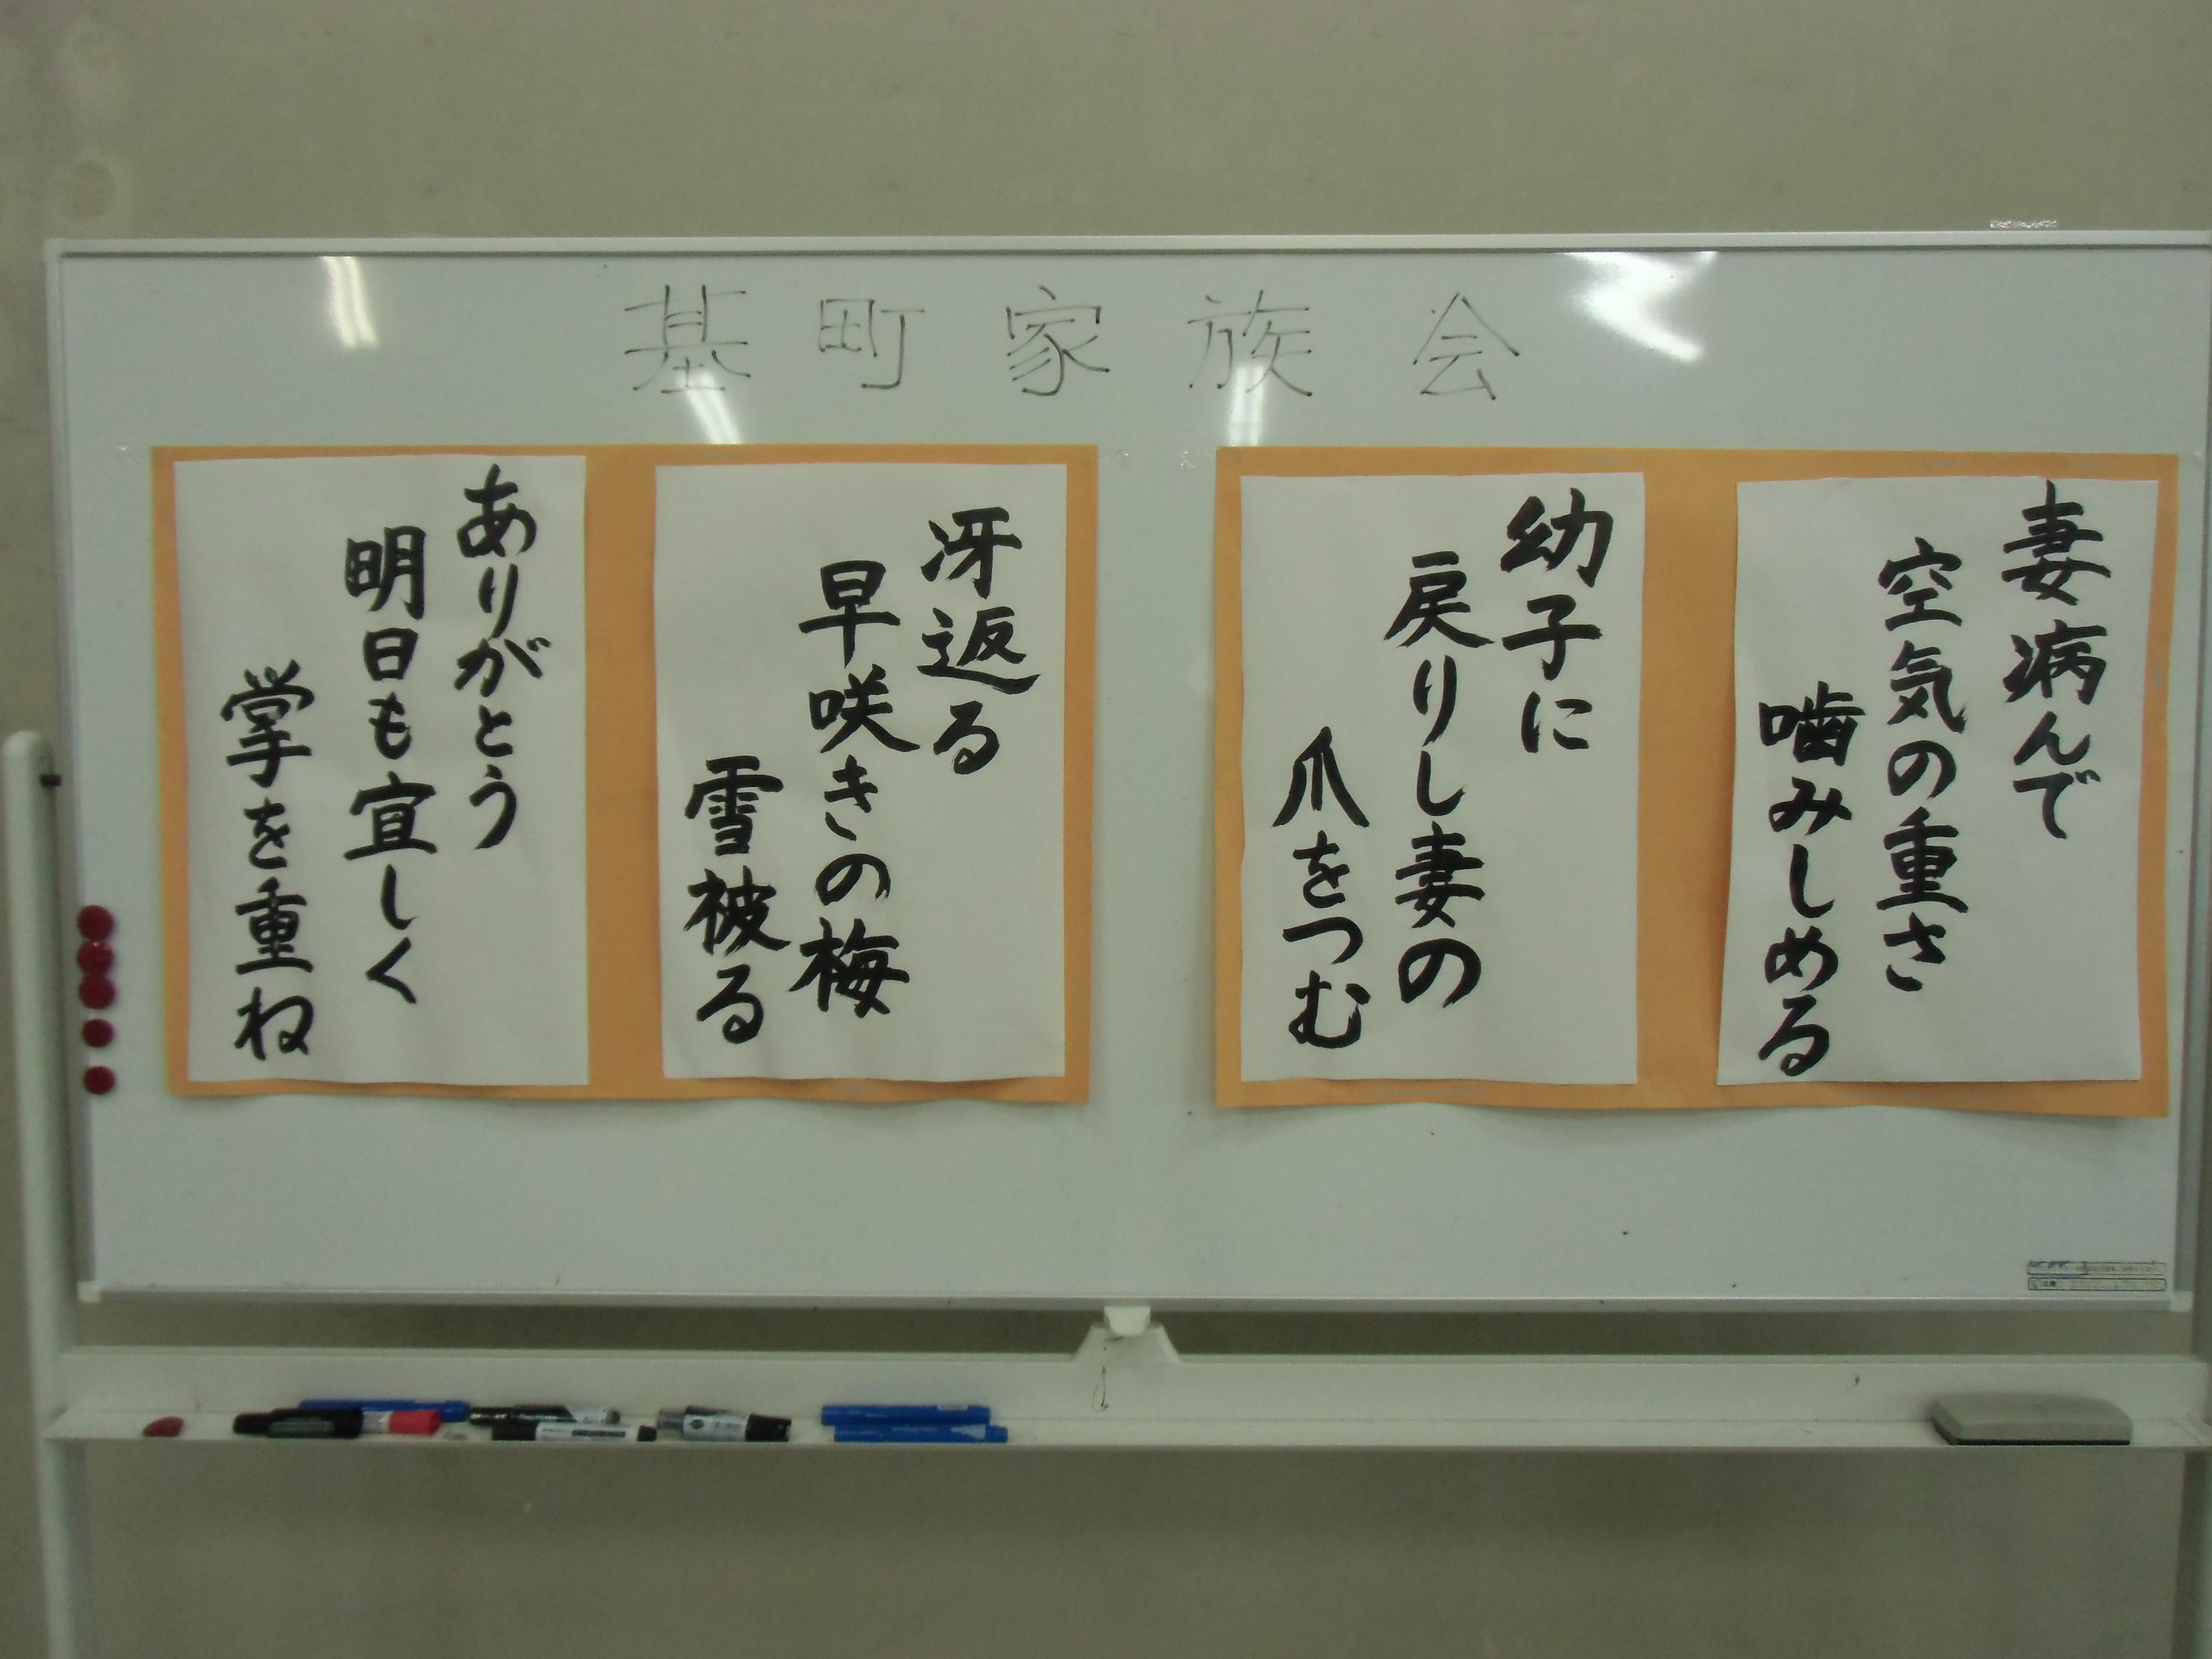 基町家族会
妻病んで
空気の重さ
噛みしめる
幼子に
戻りし妻の
爪をつむ
冴返る
早咲きの梅
雪被る
ありがとう
明日も宜しく
掌を重ね